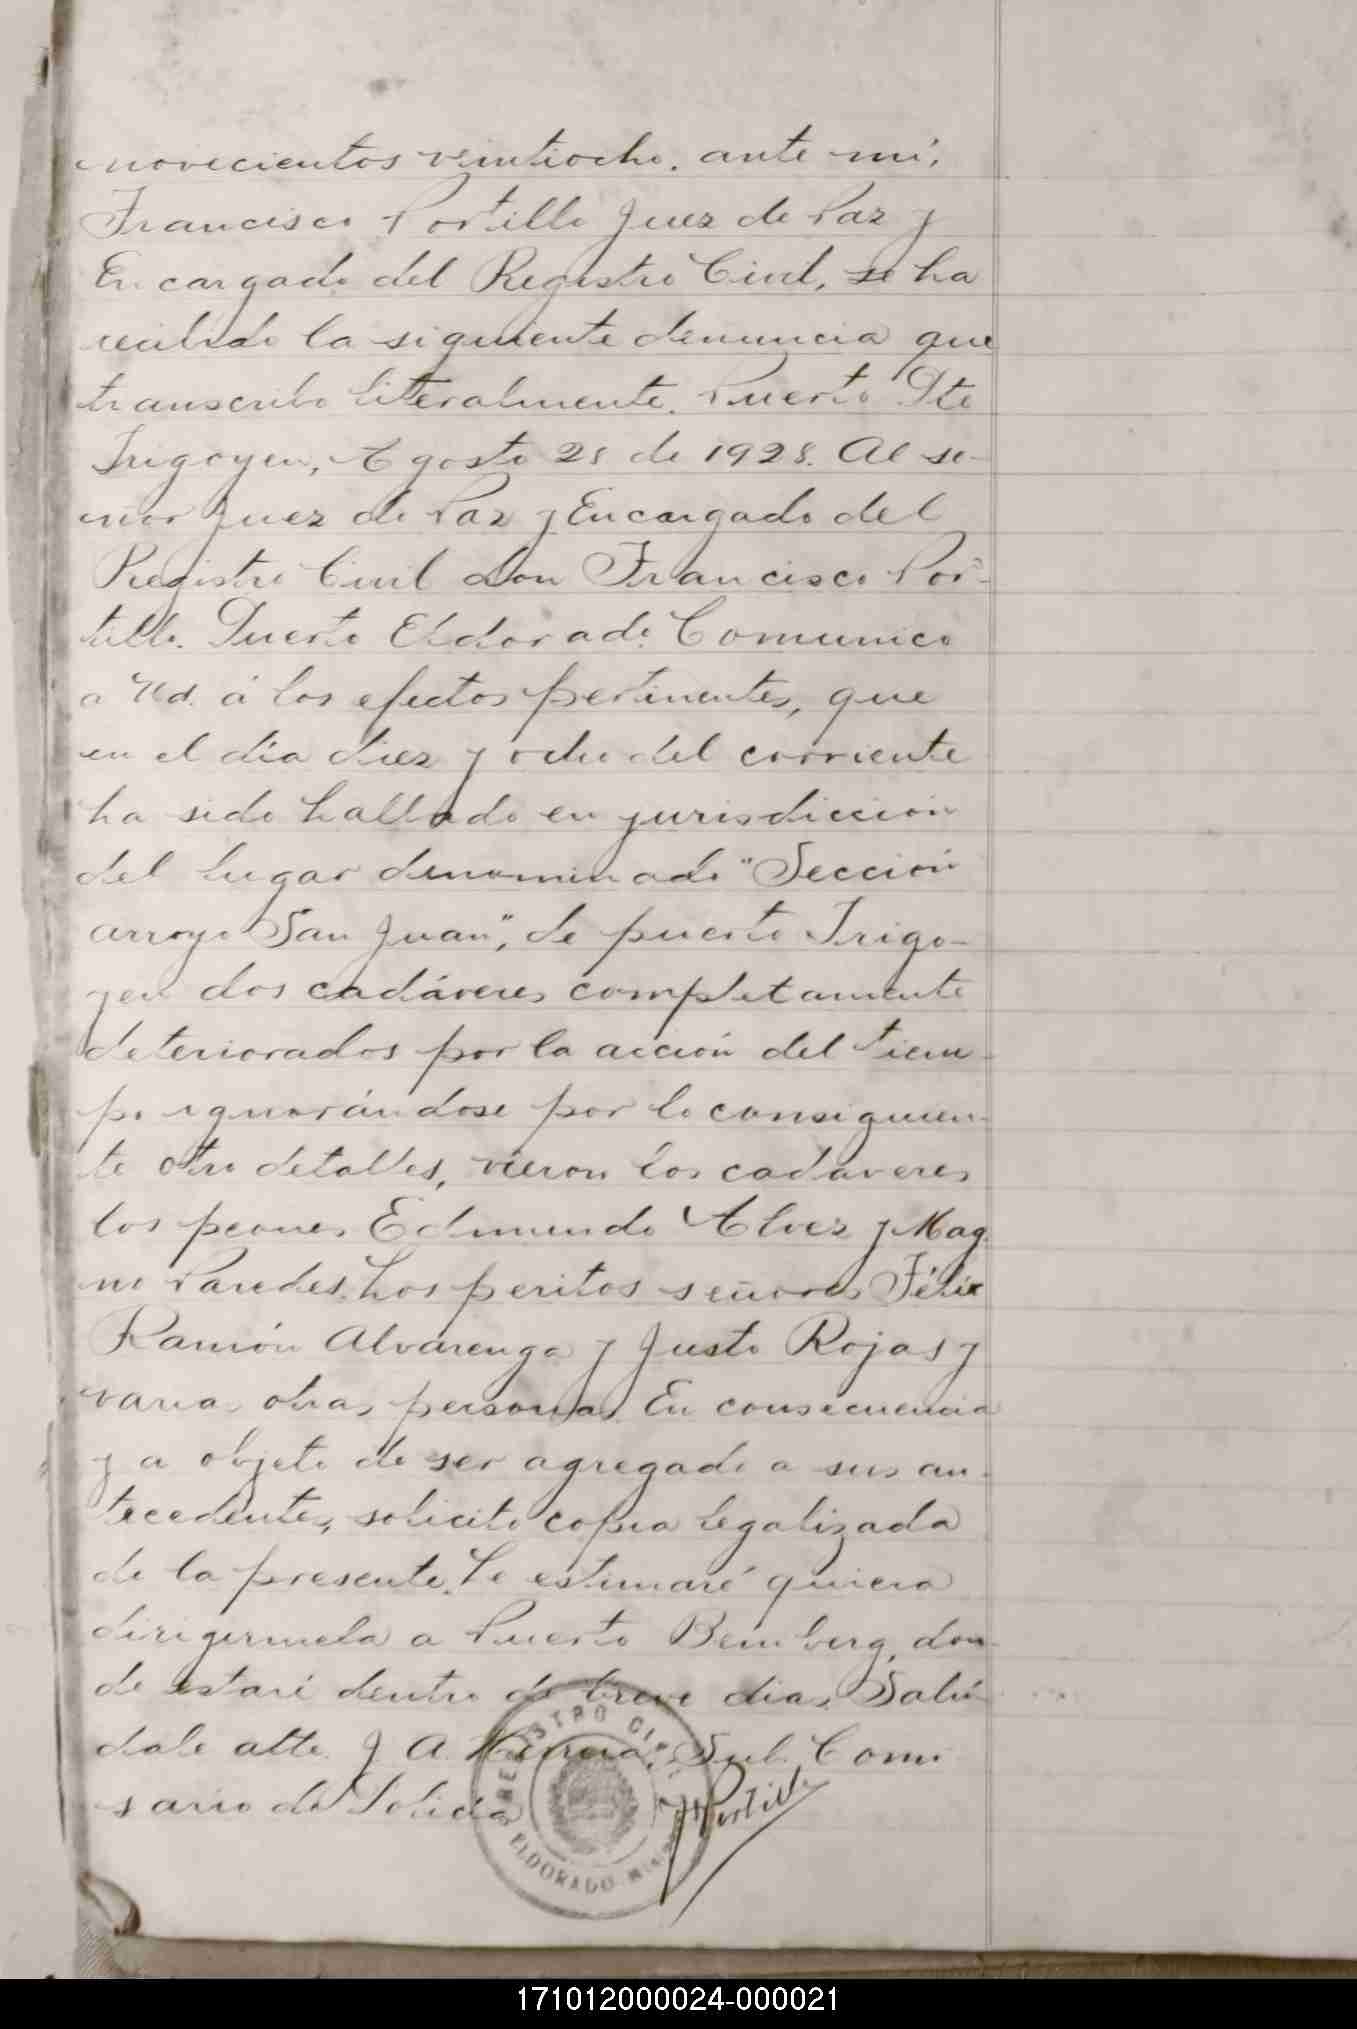 novecientos veintiocho. ante mí,
Francisco Portillo Juez de Paz y
Encargado del Registro Civil, se ha
recibido la siguiente denuncia que
transcribo literalmente. Puerto Pte
Irigoyen, Agosto 28 de 1928. Al se-
ñor Juez de Paz y Encargado del
Registro Civil don Francisco Por-
tillo. Puerto Eldorado. Comunico
a Ud. á los efectos pertinentes, que
en el día diez y ocho del corriente
ha sido hallado en jurisdicción
del lugar denominado "Sección
arroyo San Juan", de puerto Irigo-
yen dos cadáveres completamente
deteriorados por la acción del tiem-
po ignorándose por lo consiguien-
te otro detalles, vieron los cadaveres
los peones Edmundo Alvez y Mag-
no Paredes. Los peritos señores Félix
Ramón Alvarenga y Justo Rojas y
varias otras personas. En consecuencia
y a objeto de ser agregado a sus an-
tecedentes, solicito copia legalizada
de la presente. Le estimaré quiera
dirigirmela a Puerto Bemberg, don-
de estaré dentro de breve dias. Salú-
dale atte. J. A. Sub. Comi
sario de Policia
REGISTRO CIVIL
ELDORADO
Portillo
171012000024-000021